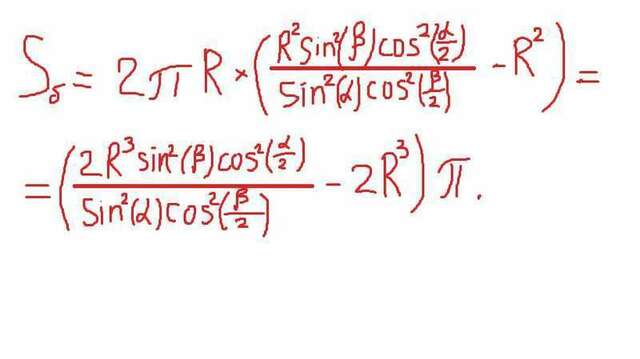 Sб = 2πR × (R² sin²(β) cos²(α/2) / sin²(α) cos²(β/2) - R²) =
= (2R³ sin²(β) cos²(α/2) / sin²(α) cos²(β/2) - 2R³) π.